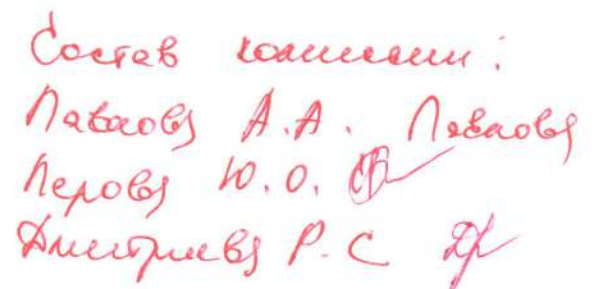 Состав комиссии:
Павлова А.А. Павлова
Перова Ю.О.
Дмитриева Р.С